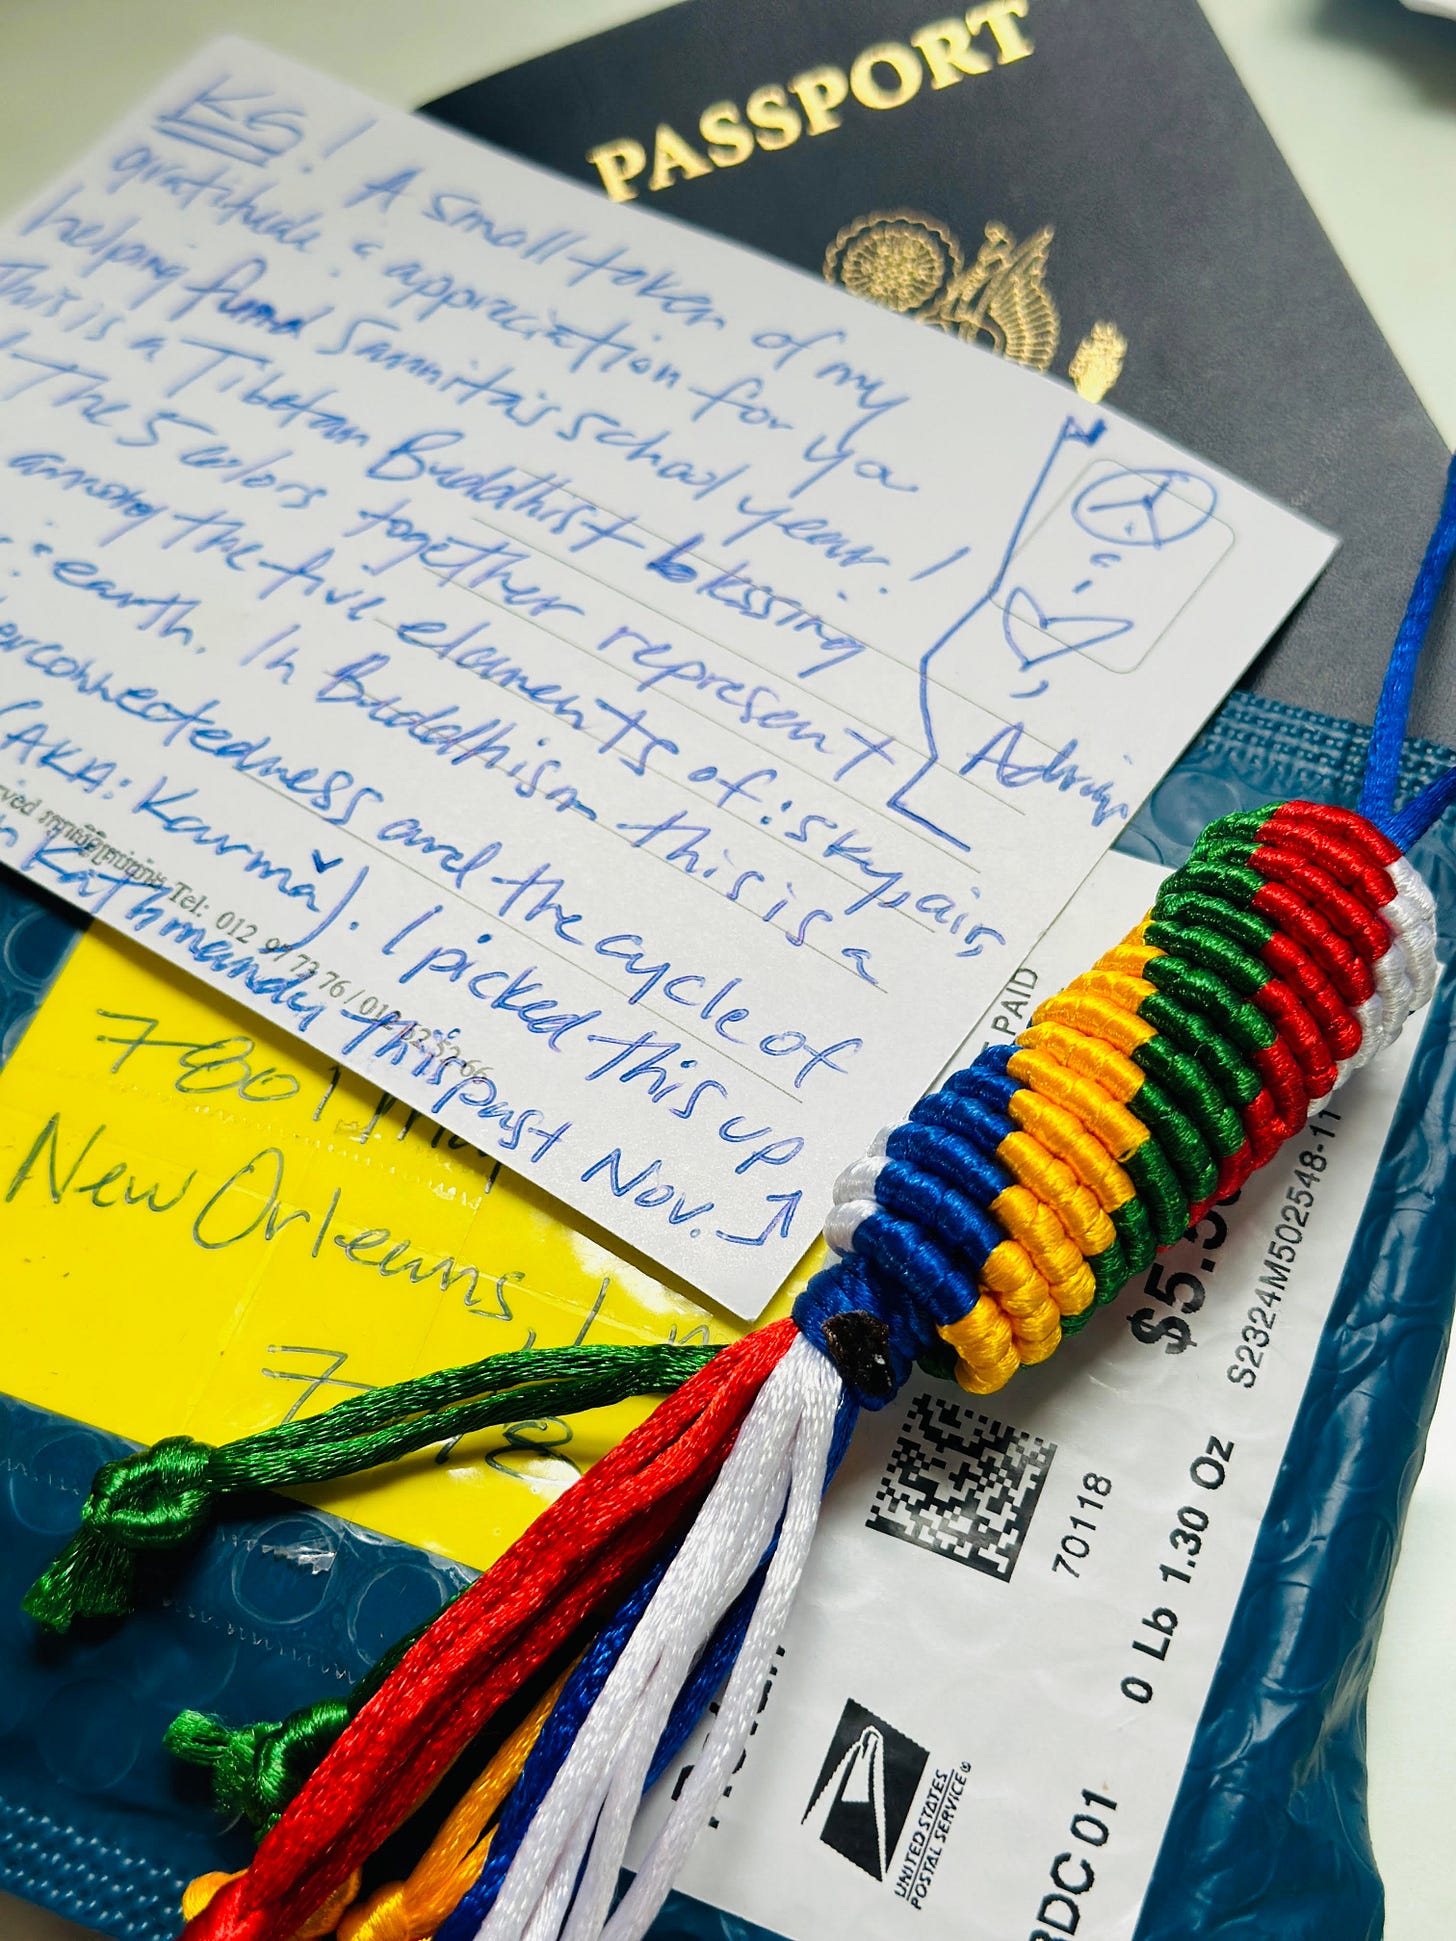 PASSPORT
KS! A small token of my
gratitude & appreciation for ya
helping fund Samnita's school year!
This is a Tibetan Buddhist blessing
The 5 colors together represent
among the five elements of: sky, air,
earth. In Buddhism this is a
erconnectedness and the cycle of
(AKA: Karma). I picked this up
Kathmandu this past Nov.
Tel: 012
76 / 012
7801
New Orleans,
PAID
$5.5
S2324M502548-11
70118
0 Lb 1.30 Oz
UNITED STATES
POSTAL SERVICE®
RDC 01